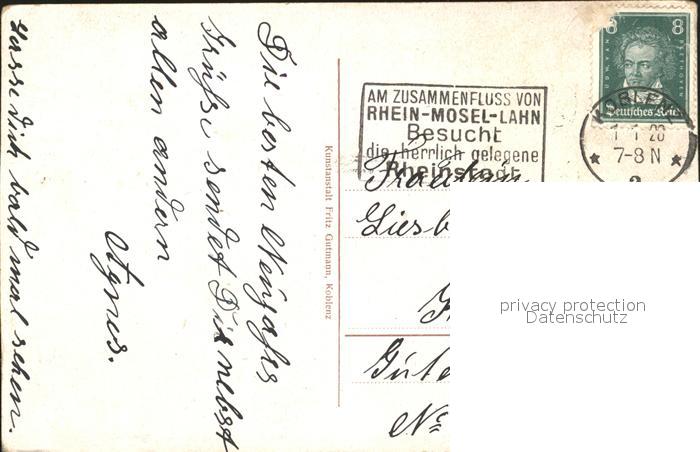 Die besten Neujahrs
Grüße sendet Dir nebst
allen andern
Agnes.
Lasse Dich bald mal sehen.
Kunstanstalt Fritz Gutmann, Koblenz
AM ZUSAMMENFLUSS VON
RHEIN-MOSEL-LAHN
Besucht
die herrlich gelegene
Rheinstadt
8 8
Deutsches Reich
KOBLENZ
1 1 28
7-8 N
Fräulein
Liesb
Güte
No
privacy protection
Datenschutz